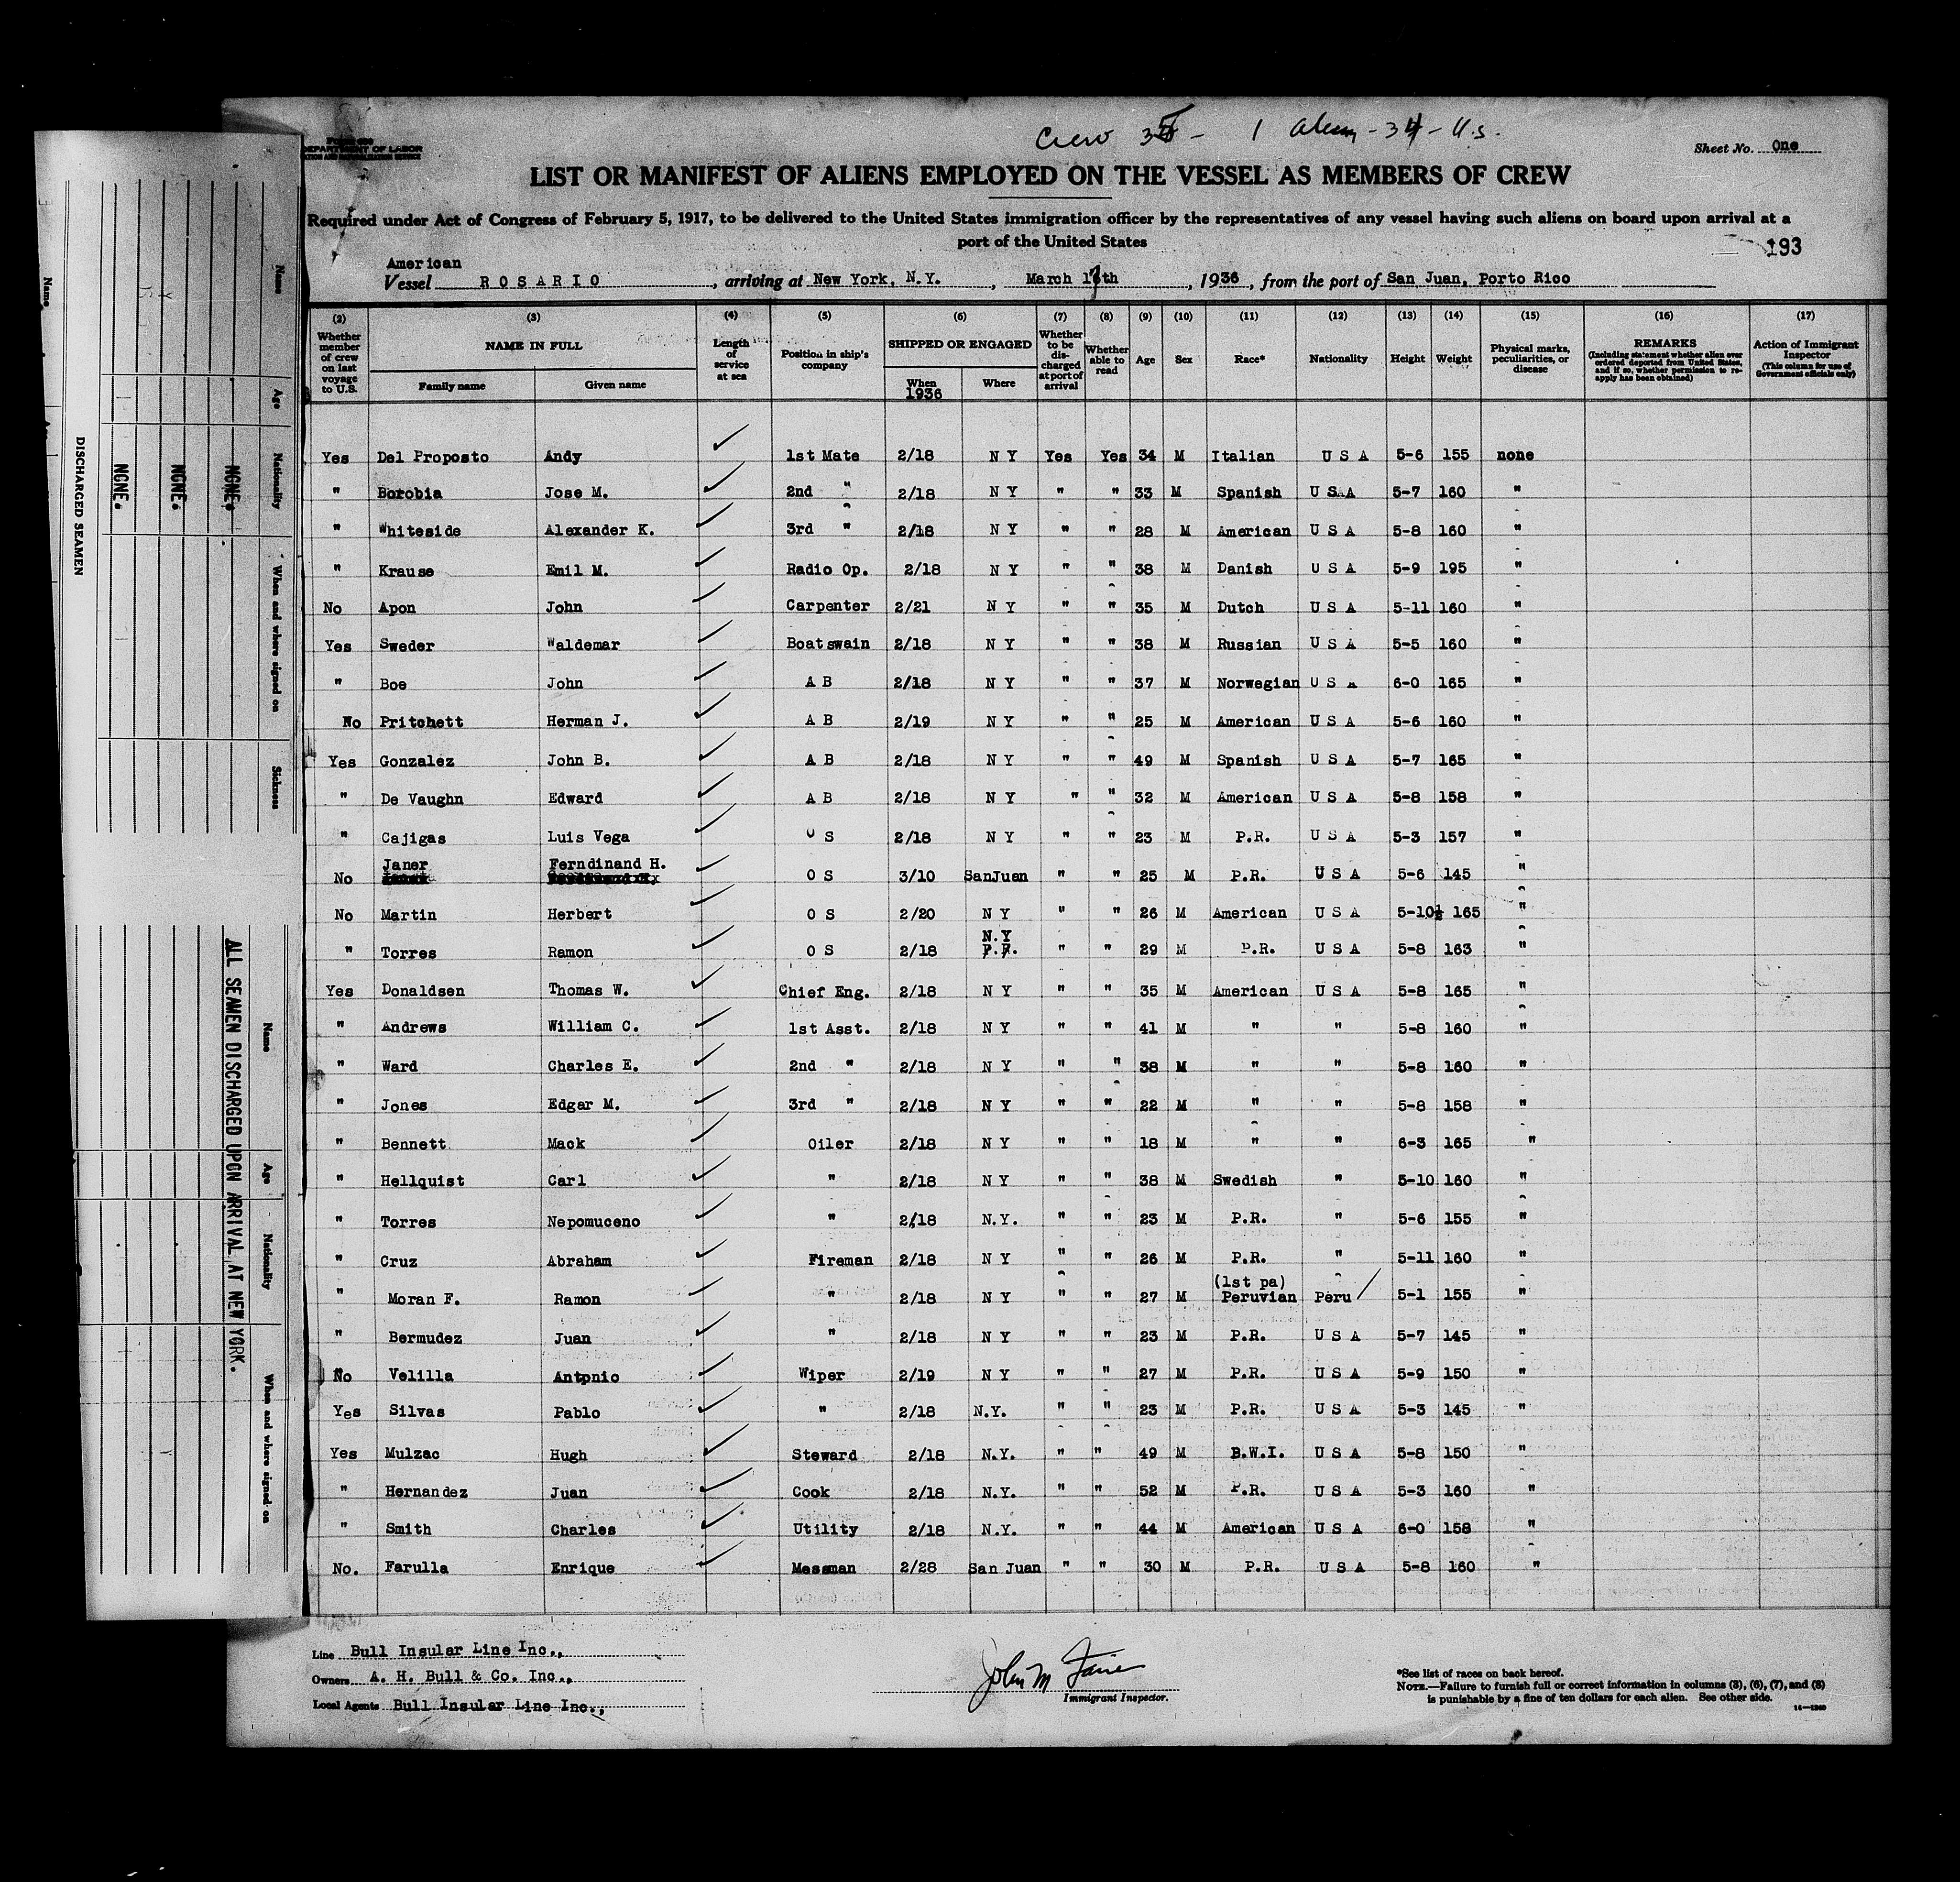 Crew 35 - 1 Alien - 34 - U.S.
DEPARTMENT OF LABOR
Sheet No. One
LIST OR MANIFEST OF ALIENS EMPLOYED ON THE VESSEL AS MEMBERS OF CREW
Required under Act of Congress of February 5, 1917, to be delivered to the United States immigration officer by the representatives of any vessel having such aliens on board upon arrival at a
port of the United States
193
American
Vessel ROSARIO, arriving at New York, N.Y., March 17th, 1936, from the port of San Juan, Porto Rico
(2) (3) (4) (5) (6) (7) (8) (9) (10) (11) (12) (13) (14) (15) (16) (17)
Whether member of crew on last voyage to U.S.
NAME IN FULL
Family name Given name
Length of service at sea
Position in ship's company
SHIPPED OR ENGAGED
When Where
1936
Whether to be discharged at port of arrival
Whether able to read
Age
Sex
Race*
Nationality
Height
Weight
Physical marks, peculiarities, or disease
REMARKS
(Including statement whether alien ever ordered deported from United States, and if so, whether permission to re-apply has been obtained)
Action of Immigrant Inspector
(This column for use of Government officials only)
Yes Del Proposto Andy 1st Mate 2/18 N Y Yes Yes 34 M Italian U S A 5-6 155 none
" Borobia Jose M. 2nd " 2/18 N Y " " 33 M Spanish U S A 5-7 160 "
" Whiteside Alexander K. 3rd " 2/18 N Y " " 28 M American U S A 5-8 160 "
" Krause Emil M. Radio Op. 2/18 N Y " " 38 M Danish U S A 5-9 195 "
No Apon John Carpenter 2/21 N Y " " 35 M Dutch U S A 5-11 160 "
Yes Sweder Waldemar Boatswain 2/18 N Y " " 38 M Russian U S A 5-5 160 "
" Boe John A B 2/18 N Y " " 37 M Norwegian U S A 6-0 165 "
No Pritchett Herman J. A B 2/19 N Y " " 25 M American U S A 5-6 160 "
Yes Gonzalez John B. A B 2/18 N Y " " 49 M Spanish U S A 5-7 165 "
" De Vaughn Edward A B 2/18 N Y " " 32 M American U S A 5-8 158 "
" Cajigas Luis Vega O S 2/18 N Y " " 23 M P.R. U S A 5-3 157 "
No Janer Ferndinand H. O S 3/10 SanJuan " " 25 M P.R. U S A 5-6 145 "
No Martin Herbert O S 2/20 N Y " " 26 M American U S A 5-10½ 165 "
N.Y
" Torres Ramon O S 2/18 P.R. " " 29 M P.R. U S A 5-8 163 "
Yes Donaldsen Thomas W. Chief Eng. 2/18 N Y " " 35 M American U S A 5-8 165 "
" Andrews William C. 1st Asst. 2/18 N Y " " 41 M " " 5-8 160 "
" Ward Charles E. 2nd " 2/18 N Y " " 38 M " " 5-8 160 "
" Jones Edgar M. 3rd " 2/18 N Y " " 22 M " " 5-8 158 "
" Bennett Mack Oiler 2/18 N Y " " 18 M " " 6-3 165 "
" Hellquist Carl " 2/18 N Y " " 38 M Swedish " 5-10 160 "
" Torres Nepomuceno " 2/18 N.Y. " " 23 M P.R. " 5-6 155 "
" Cruz Abraham Fireman 2/18 N Y " " 26 M P.R. " 5-11 160 "
(1st pa)
" Moran F. Ramon " 2/18 N Y " " 27 M Peruvian Peru 5-1 155 "
" Bermudez Juan " 2/18 N Y " " 23 M P.R. U S A 5-7 145 "
No Velilla Antonio Wiper 2/19 N Y " " 27 M P.R. U S A 5-9 150 "
Yes Silvas Pablo " 2/18 N.Y. " " 23 M P.R. U S A 5-3 145 "
Yes Mulzac Hugh Steward 2/18 N.Y. " " 49 M B.W.I. U S A 5-8 150 "
" Hernandez Juan Cook 2/18 N.Y. " " 52 M P.R. U S A 5-3 160 "
" Smith Charles Utility 2/18 N.Y. " " 44 M American U S A 6-0 158 "
No. Farulla Enrique Messman 2/28 San Juan " " 30 M P.R. U S A 5-8 160 "
Line Bull Insular Line Inc.,
Owners A. H. Bull & Co. Inc.,
Local Agents Bull Insular Line Inc.,
John M
Immigrant Inspector.
*See list of races on back hereof.
NOTE.—Failure to furnish full or correct information in columns (3), (6), (7), and (8)
is punishable by a fine of ten dollars for each alien. See other side.
Name Age Nationality When and where signed on Sickness
NONE. NONE. NONE.
DISCHARGED SEAMEN
Name Age Nationality When and where signed on
ALL SEAMEN DISCHARGED UPON ARRIVAL AT NEW YORK.
Name